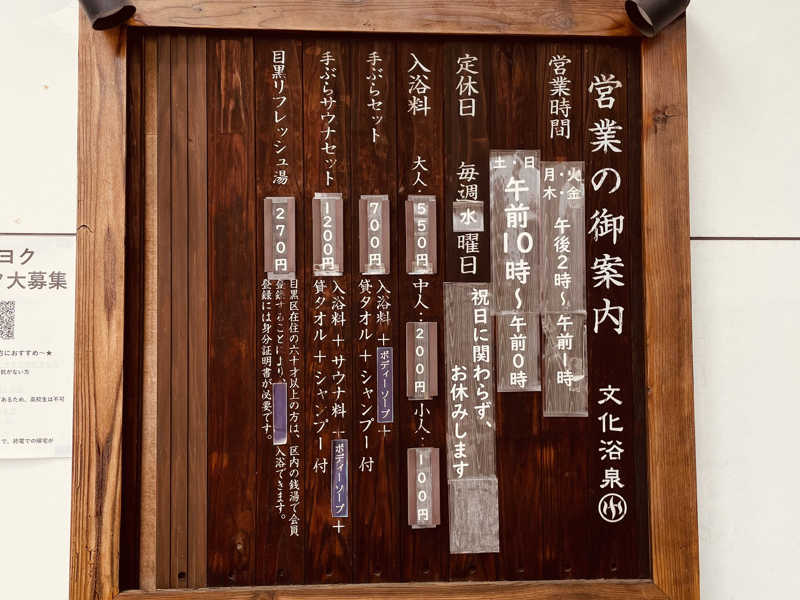 営業の御案内 文化浴泉
営業時間
月・火・
木・金
午後2時〜午前1時
土・日
午前10時〜午前0時
定休日 毎週水曜日
祝日に関わらず、
お休みします
入浴料 大人:550円 中人:200円 小人:100円
手ぶらセット 700円
入浴料+ボディーソープ+
貸タオル+シャンプー付
手ぶらサウナセット 1200円
入浴料+サウナ料+ボディーソープ+
貸タオル+シャンプー付
目黒リフレッシュ湯 270円
目黒区在住の六十才以上の方は、区内の銭湯で会員
登録することにより 入浴できます。
登録には身分証明書が必要です。
ヨク
大募集
におすすめ〜★
があるため、高校生は不可
で、終電での帰宅が